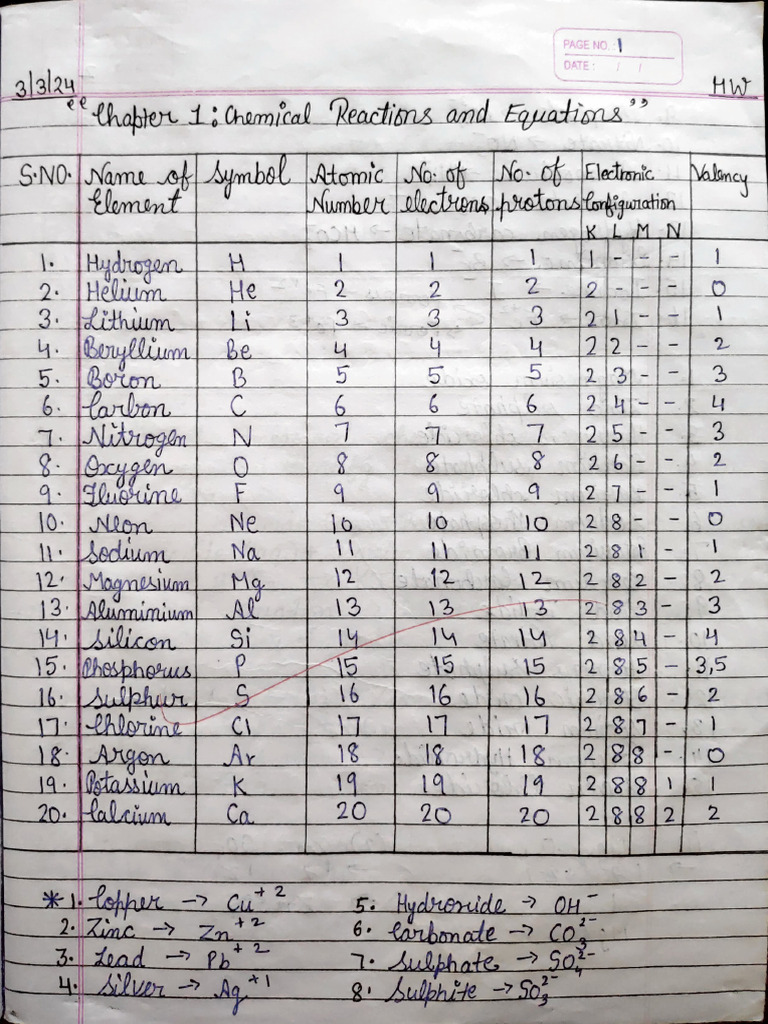 PAGE NO.: 1
DATE: / /
3/3/24 HW
"Chapter 1: Chemical Reactions and Equations"
S.NO. Name of Element Symbol Atomic Number No. of electrons No. of protons Electronic Configuration Valency
K L M N
1. Hydrogen H 1 1 1 1 - - - 1
2. Helium He 2 2 2 2 - - - 0
3. Lithium Li 3 3 3 2 1 - - 1
4. Beryllium Be 4 4 4 2 2 - - 2
5. Boron B 5 5 5 2 3 - - 3
6. Carbon C 6 6 6 2 4 - - 4
7. Nitrogen N 7 7 7 2 5 - - 3
8. Oxygen O 8 8 8 2 6 - - 2
9. Fluorine F 9 9 9 2 7 - - 1
10. Neon Ne 10 10 10 2 8 - - 0
11. Sodium Na 11 11 11 2 8 1 - 1
12. Magnesium Mg 12 12 12 2 8 2 - 2
13. Aluminium Al 13 13 13 2 8 3 - 3
14. Silicon Si 14 14 14 2 8 4 - 4
15. Phosphorus P 15 15 15 2 8 5 - 3,5
16. Sulphur S 16 16 16 2 8 6 - 2
17. Chlorine Cl 17 17 17 2 8 7 - 1
18. Argon Ar 18 18 18 2 8 8 - 0
19. Potassium K 19 19 19 2 8 8 1 1
20. Calcium Ca 20 20 20 2 8 8 2 2
*1. Copper → Cu⁺² 5. Hydroxide → OH⁻
2. Zinc → Zn⁺² 6. Carbonate → CO₃²⁻
3. Lead → Pb⁺² 7. Sulphate → SO₄²⁻
4. Silver → Ag⁺¹ 8. Sulphite → SO₃²⁻